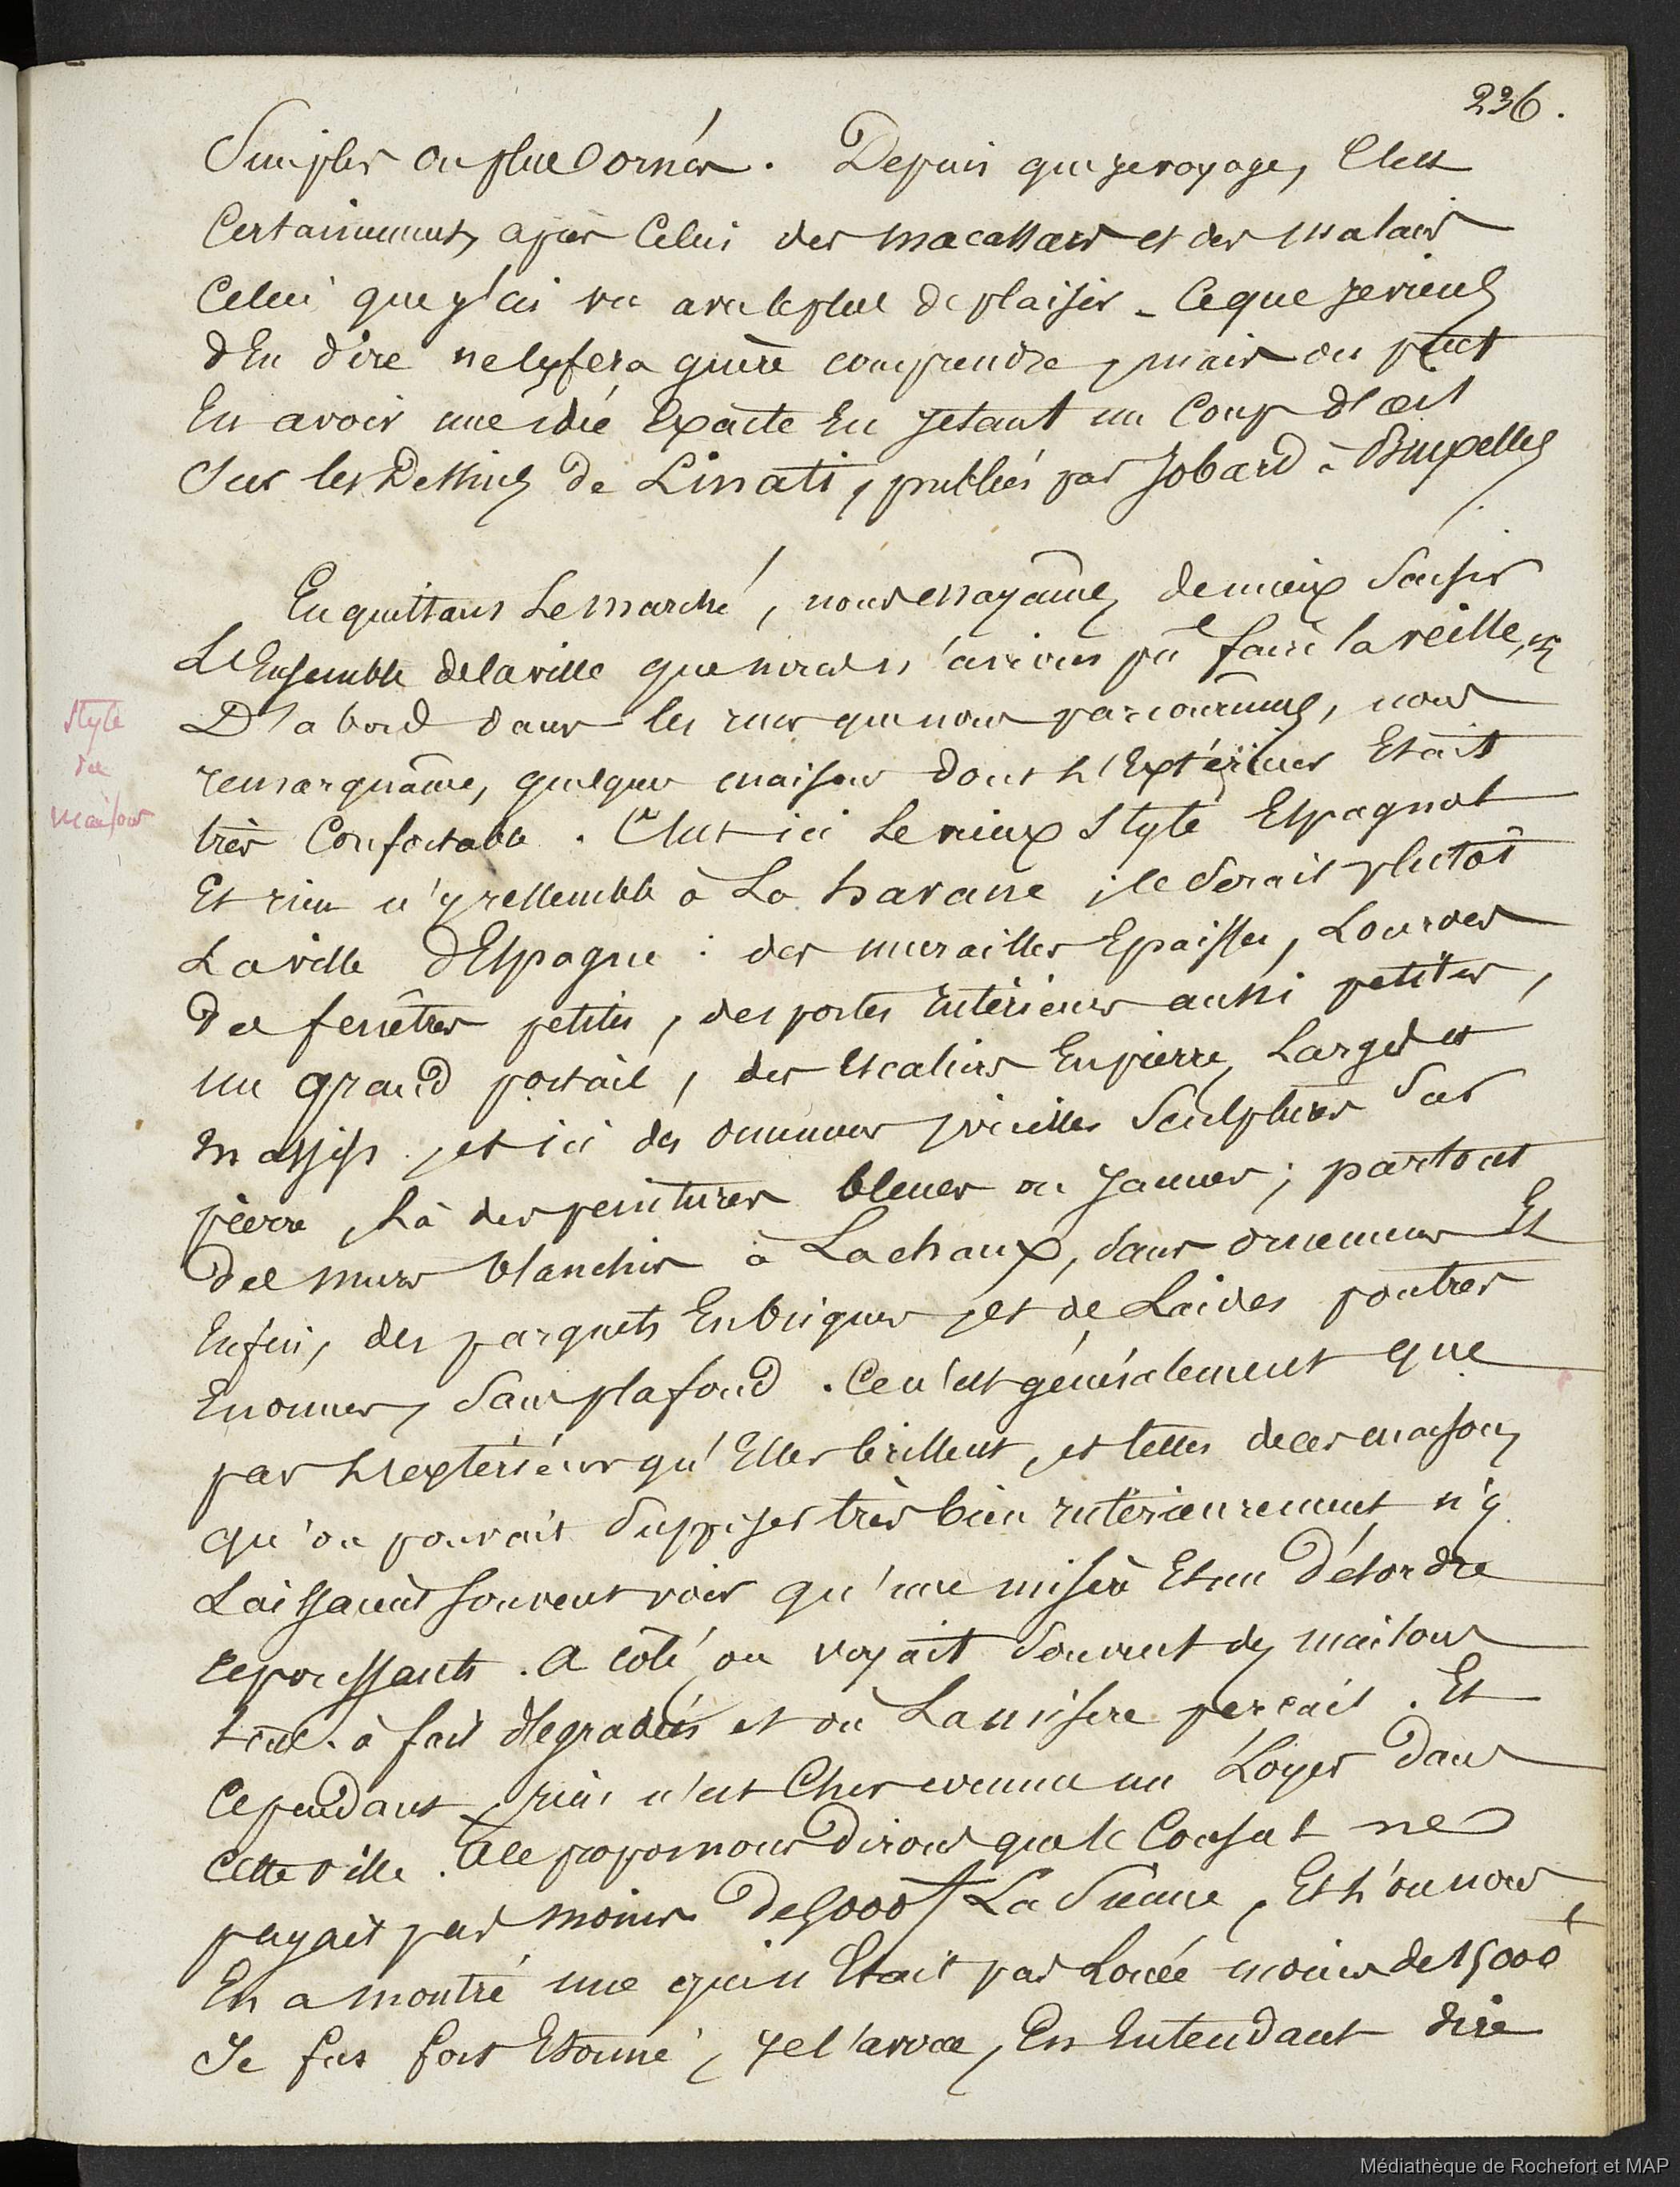 236.
Simples ou plus ornés. Depuis que je voyage, C'est
Certainement, après Celui des macassars et des malais
Celui que j'ai vu avec le plus de plaisir _ Ce que je viens
d'En dire ne le fera guère comprendre, mais on peut
En avoir une idée Exacte En jetant un Coup d'œil
Sur les Dessins de Linati, publiés par Jobard à Bruxelles
En quittant Le marché, nous essayâmes de mieux Saisir
L'Ensemble de la ville que nous n'avions pu le faire la veille,
D'abord dans les rues que nous parcourûmes, nous
remarquâmes, quelques maisons dont L'Extérieur Etait
très Confortable. C'est ici Le vieux Style Espagnol
Et rien n'y ressemble à La havane, ce Serait plutôt
La vieille Espagne : des murailles Epaisses, Lourdes
Des fenêtres petites, des portes Intérieures aussi petites,
un grand portail, des Escaliers En pierre, Larges et
massifs, et ici des vieilles Sculptures Sur
pierre, Là des peintures bleues ou jaunes ; partout
des murs blanchis à La chaux, Sans ornements Et
Enfin, des parquets En briques, et de Laides poutres
Enormes, Sans plafond. Ce n'est généralement que
par L'extérieur qu'Elles brillent, et telles de ces maisons
qu'on pouvait Supposer très bien intérieurement n'y
Laissaient souvent voir qu'une misère Et un Désordre
repoussants. A côté, on voyait Souvent des maisons
tout-à fait dégradées et où La misère perçait. Et
Cependant, rien n'est Cher comme un Loyer Dans
Cette ville. A ce propos nous Dirons que le Consul ne
payait pas moins De 5000f La Sienne, Et L'on nous
En a montré une qui n'Etait pas Louée moins de 15000f
Je fus fort Etonné, je l'avoue, En Entendant dire
Style
des
maisons
Médiathèque de Rochefort et MAP